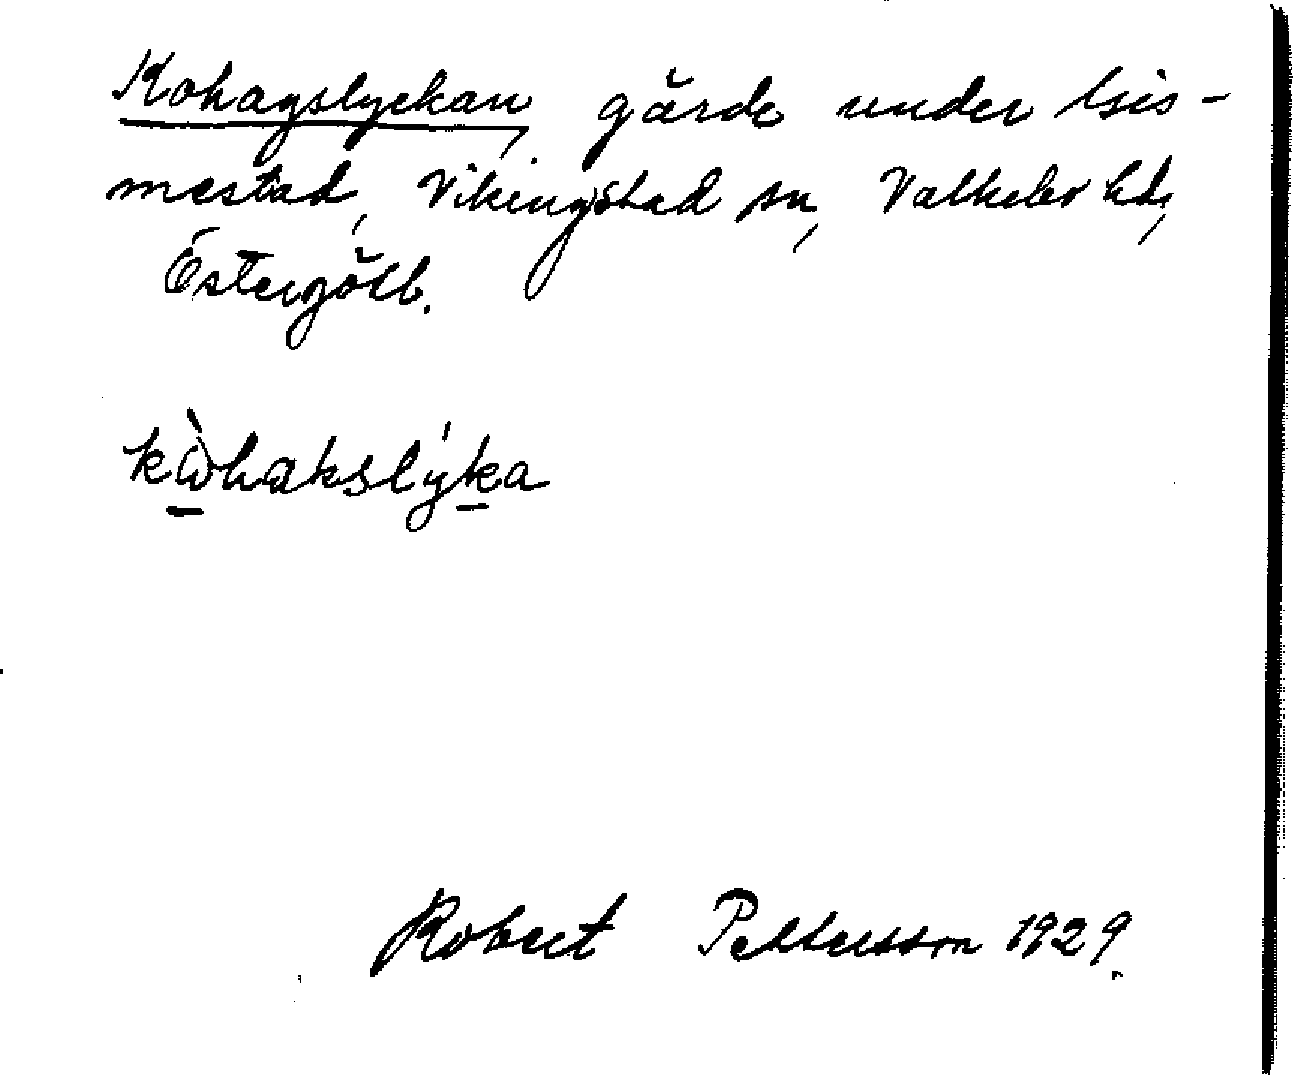 Kohagslyckan, gärde under Bis-
mestad, Vikingstad sn, Valkebo hd,
Östergötl.
kὼhakslýka
Robert Pettersson 1929.